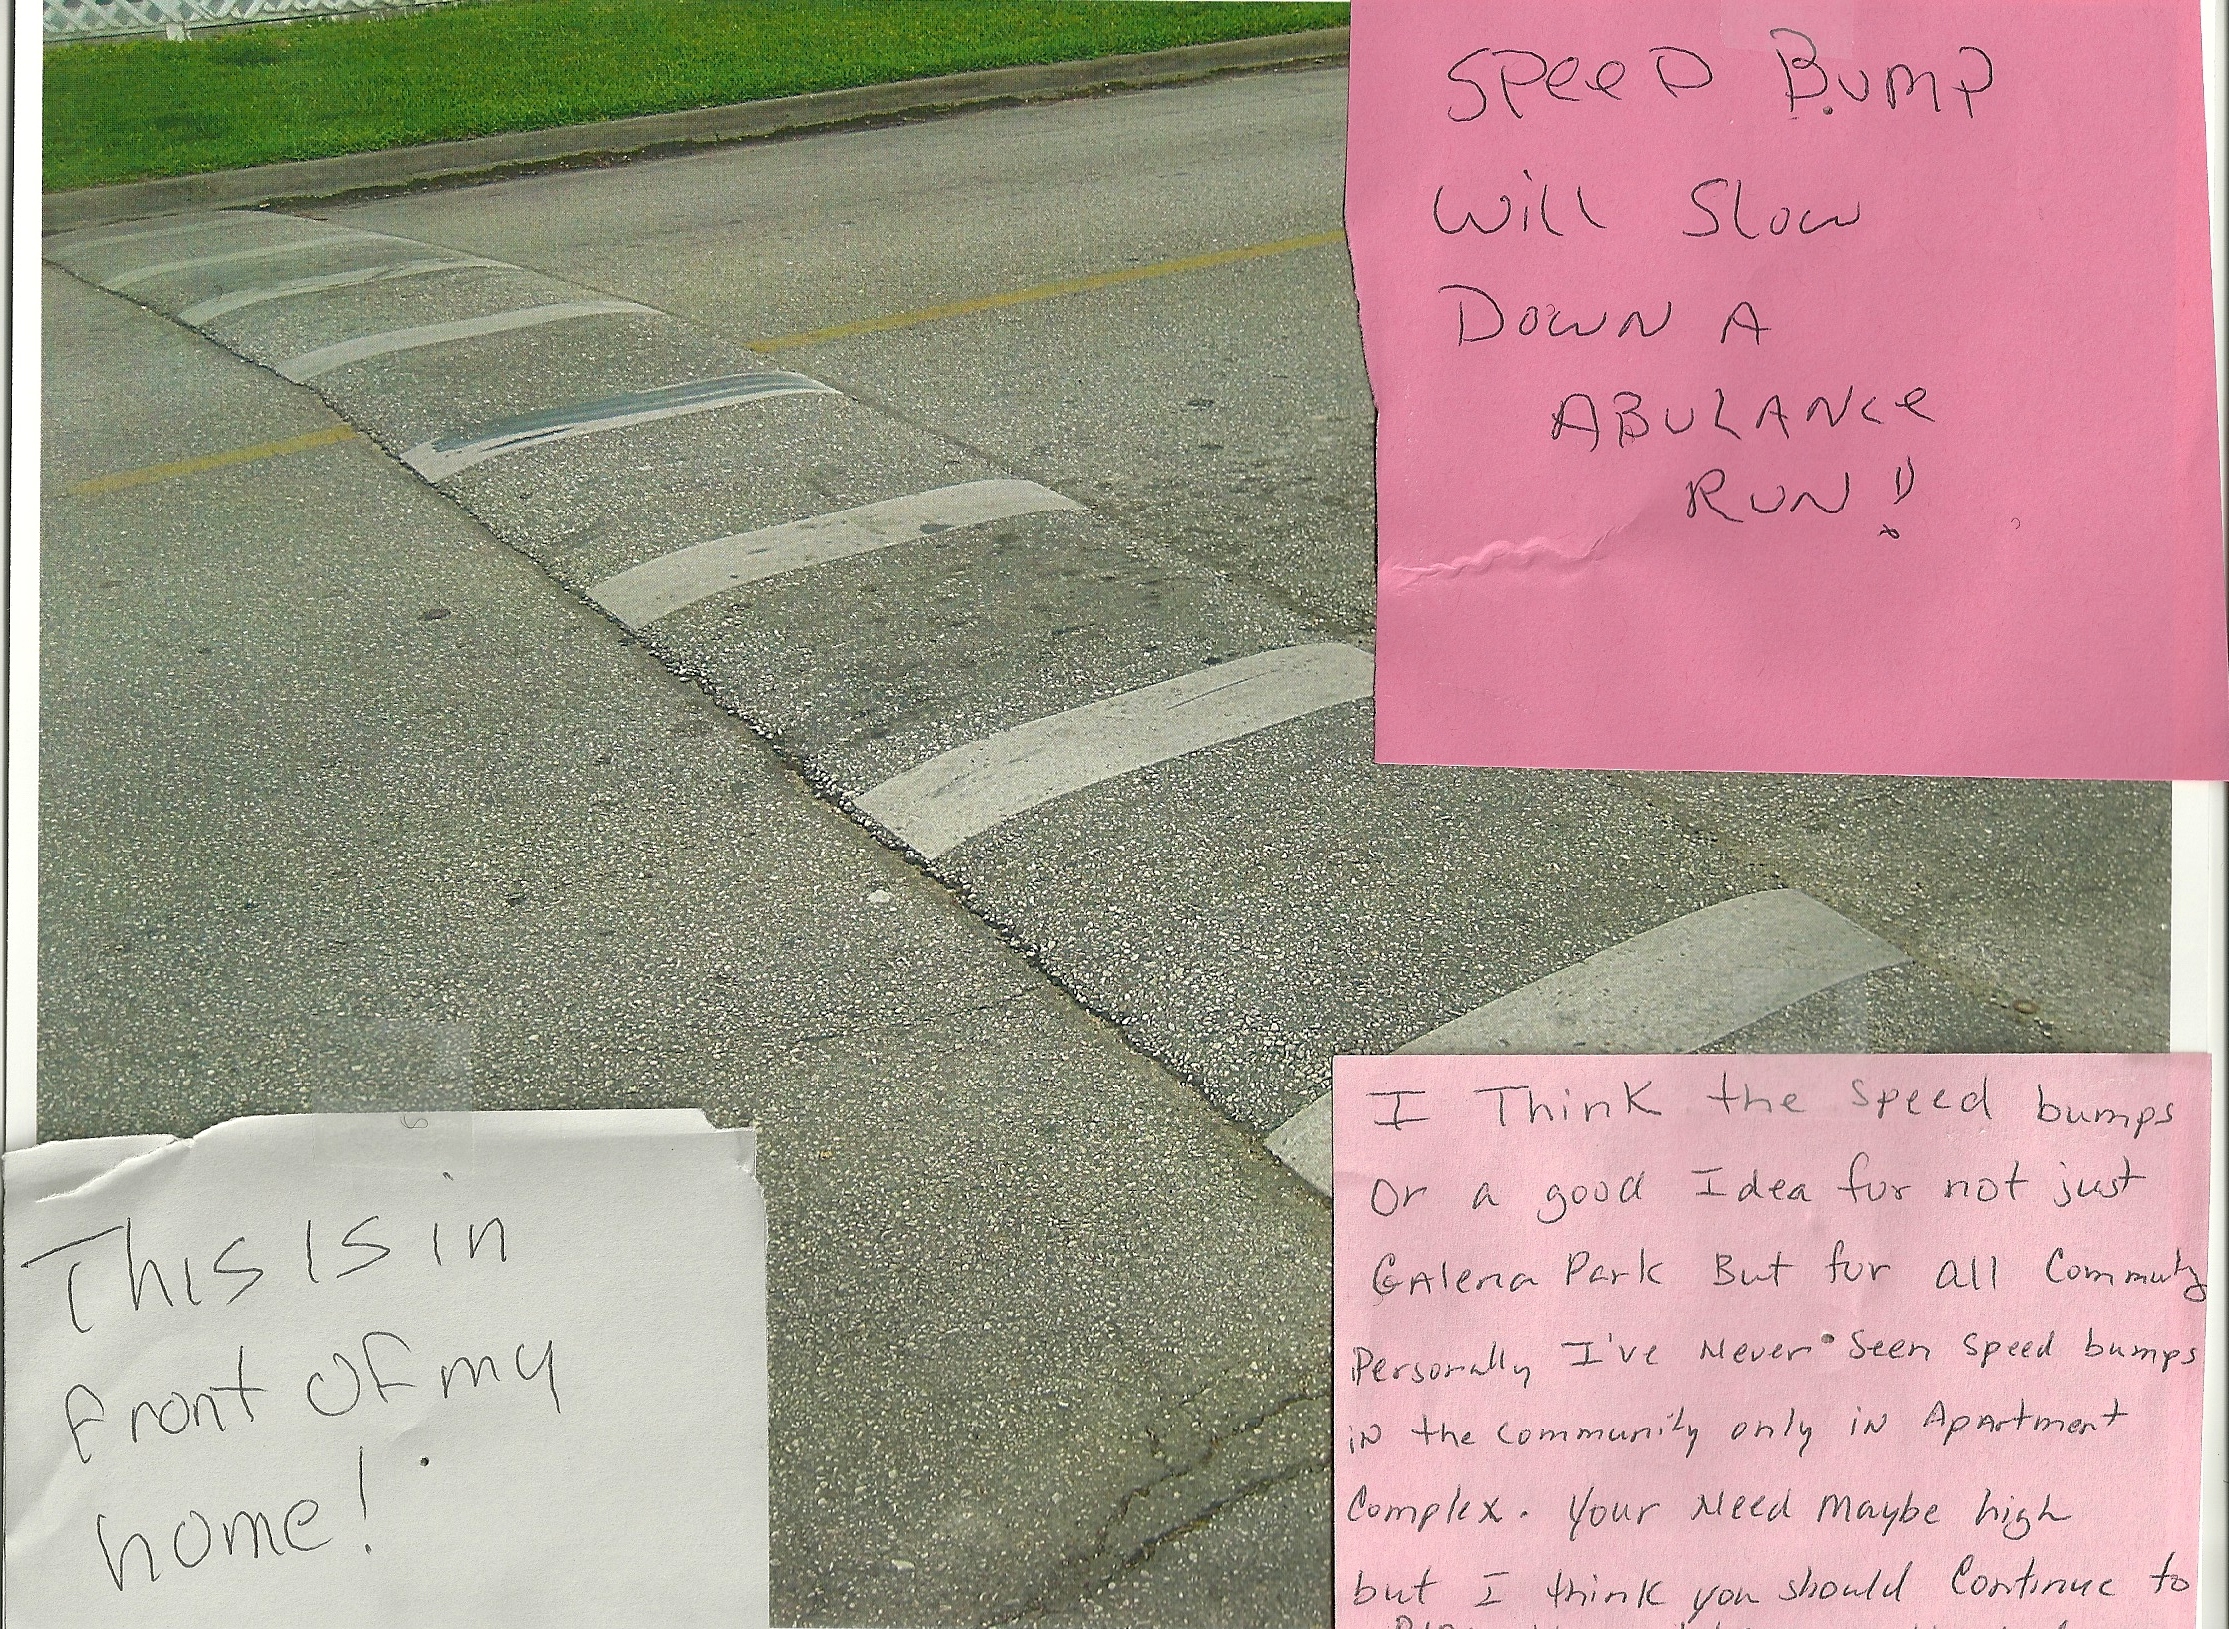 SPeeD Bump
Will Slow
DOWN A
ABULANCe
RUN!!
This is in
front of my
home!
I Think the speed bumps
Or a good Idea for not just
GAlena Park But for all Commuty
Personally I've Never Seen speed bumps
in the community only in Apartment
Complex. Your Need Maybe high
but I think you should Continue to